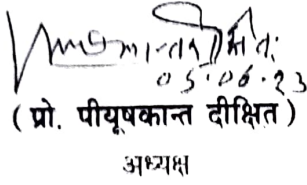 05.06.23
( प्रो. पीयूषकान्त दीक्षित )
अध्यक्ष